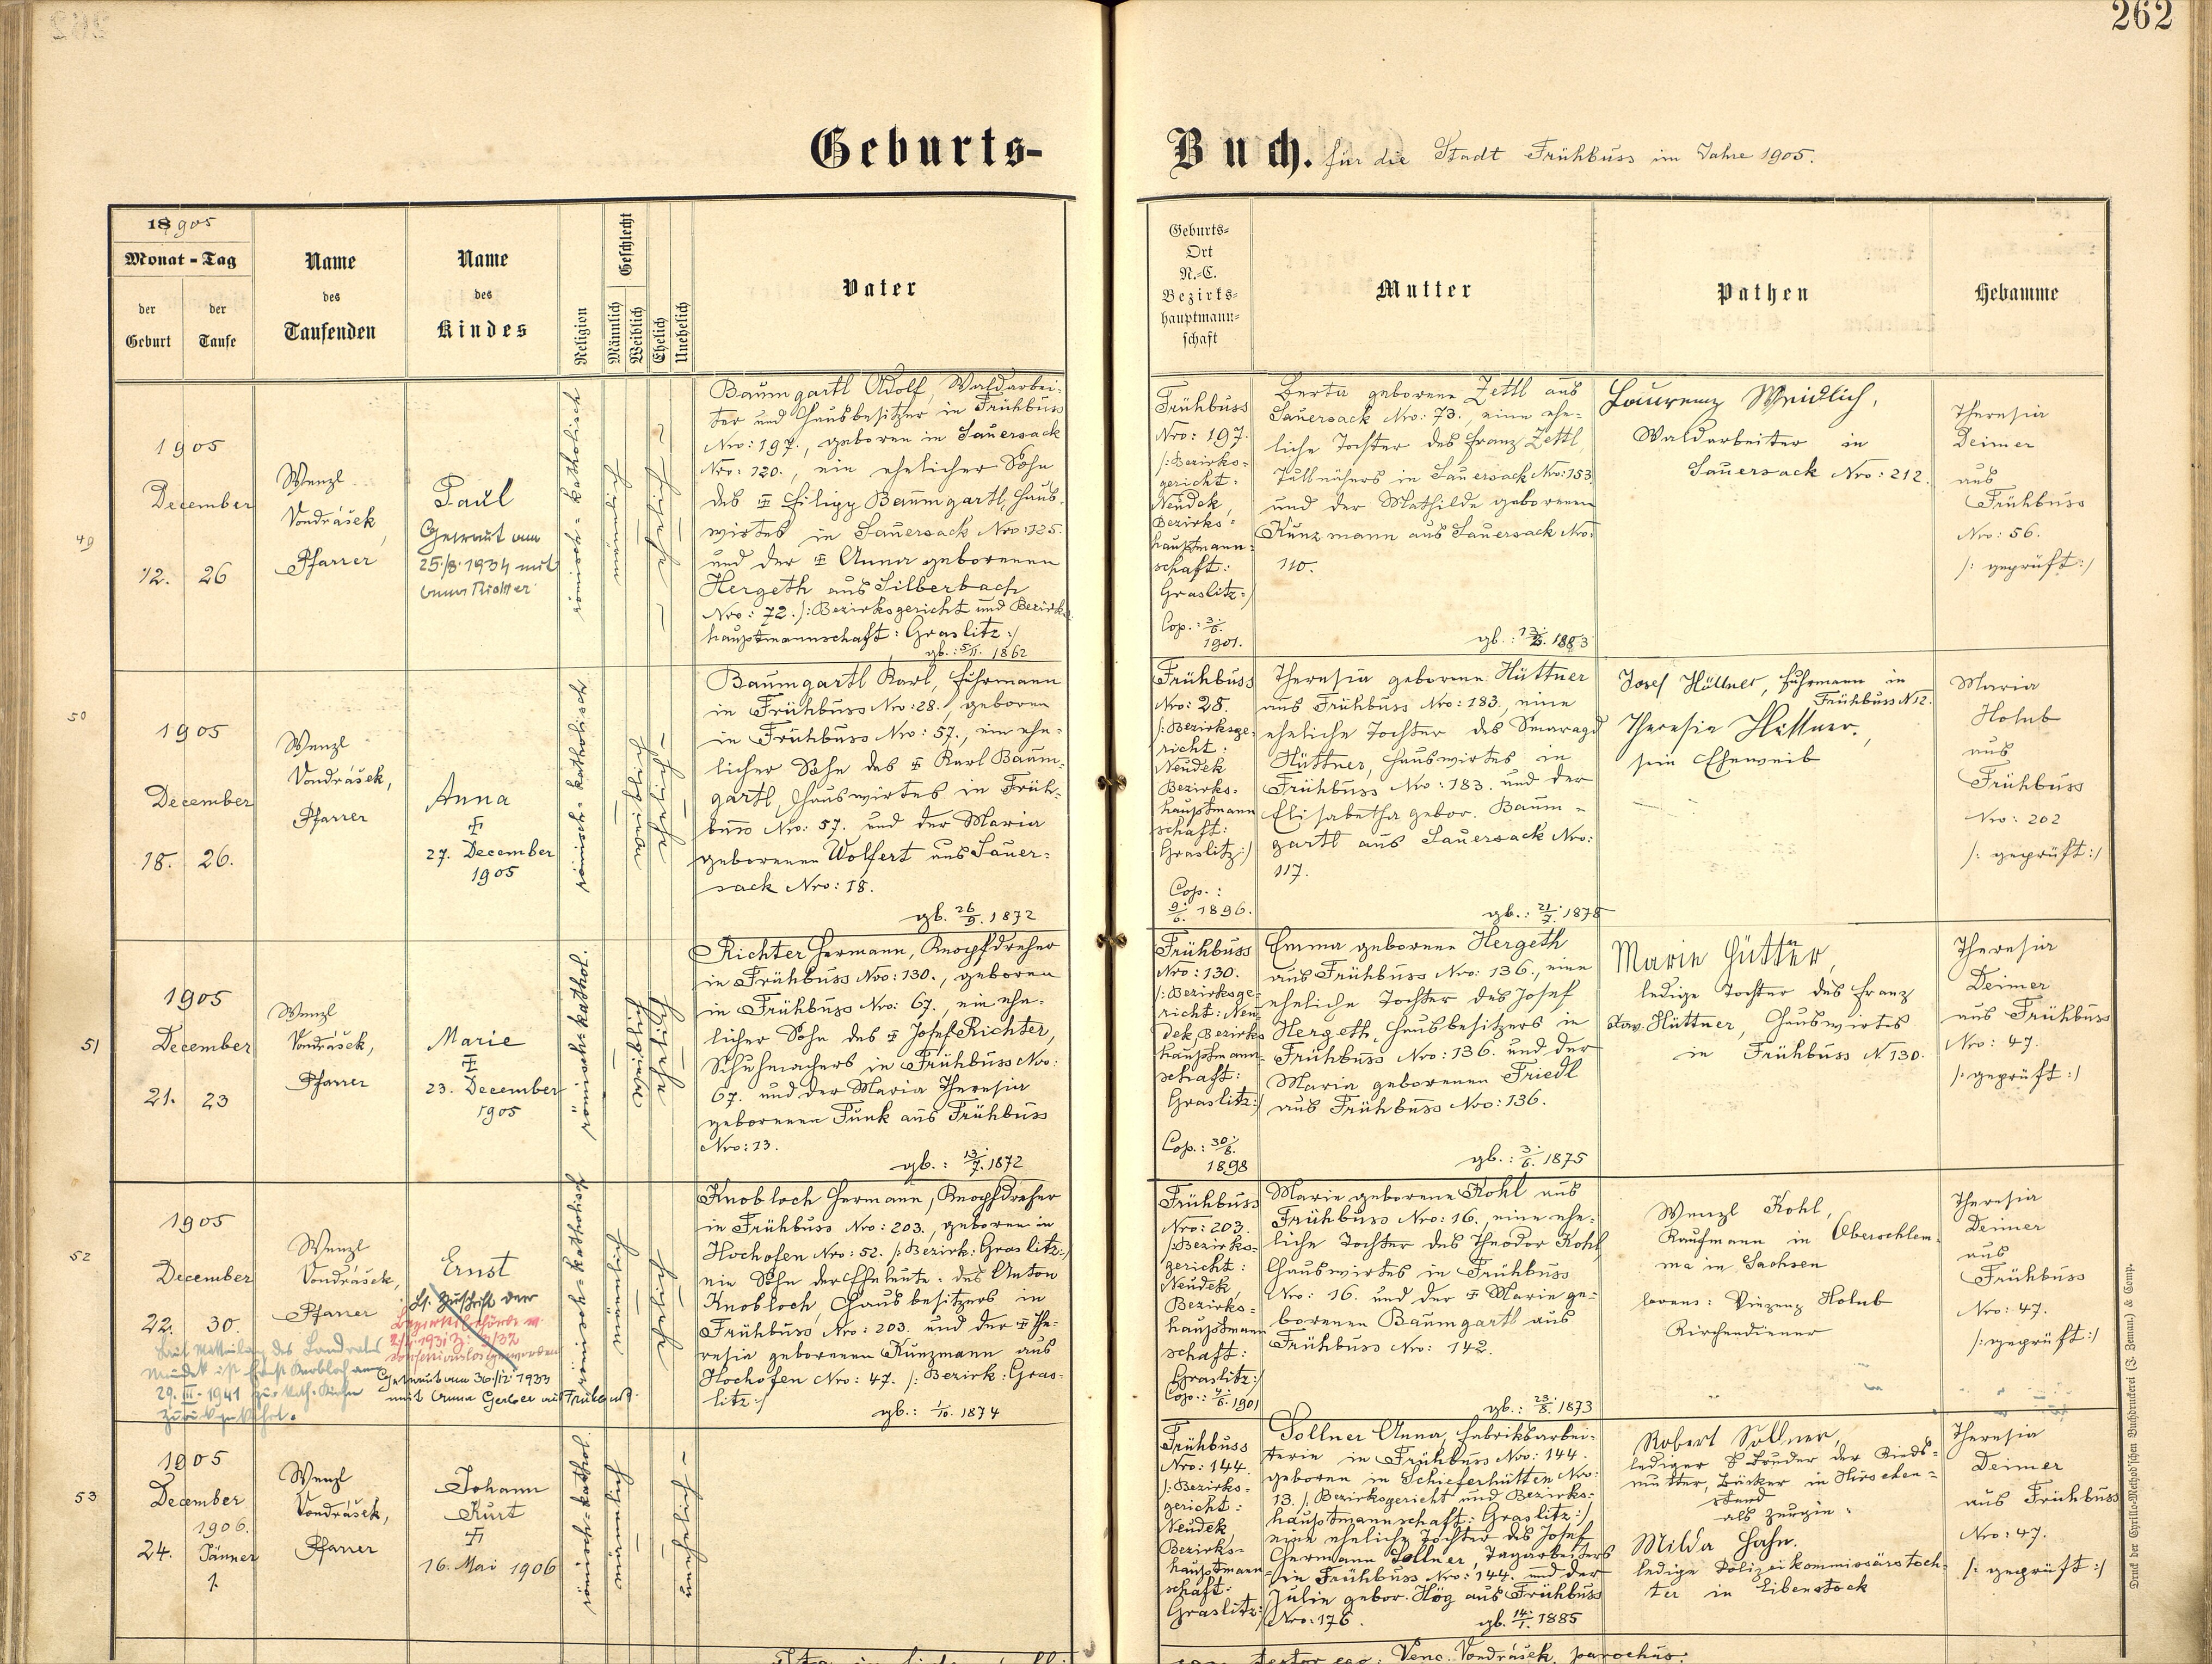 262
Geburts-
Buch. für die Stadt Frühbuss im Jahre 1905.
18905
Monat - Tag
der
Geburt
der
Taufe
Name
des
Taufenden
Name
des
Kindes
Religion
Geschlecht
Männlich
Weiblich
Ehelich
Unehelich
Vater
Geburts-
Ort
N.-C.
Bezirks-
hauptmann-
schaft
Mutter
Pathen
Hebamme
49
1905
December
12. 26
Wenzl
Vondrášek,
Pfarrer
Paul
Getraut am
25./8. 1934 mit
römisch-katholisch
Baumgartl Adolf, Waldarbei-
ter und Hausbesitzer in Frühbuss
Nro: 197., geboren in Sauersack
Nro: 120., ein ehelicher Sohn
des ‡ Filipp Baumgartl, Haus-
wirtes in Sauersack Nro: 125.
und der ‡ Anna geborenen
Hergeth aus Silberbach
Nro: 72. /: Bezirksgericht und Bezirks-
hauptmannschaft: Graslitz :/
gb.: 5/11. 1862
Frühbuss
Nro: 197.
/: Bezirks-
gericht:
Neudek,
Bezirks-
hauptmann-
schaft:
Graslitz :/
Cop.: 3/6.
1901.
Berta geborene Zettl aus
Sauersack Nro: 73., eine ehe-
liche Tochter des Franz Zettl
Tüllnähers in Sauersack Nro: 153
und der Mathilde geborenen
Kunzmann aus Sauersack Nro:
110.
1883
Laurenz Weidlich,
Waldarbeiter in
Sauersack Nro: 212.
Theresia
Deimer
aus
Frühbuss
Nro: 56.
/: geprüft :/
50
1905
December
18. 26.
Wenzl
Vondrášek,
Pfarrer
Anna
‡
27. December
1905
römisch-katholisch
Baumgartl Karl, Fuhrmann
in Frühbuss Nro: 28., geboren
in Frühbuss Nro: 57., ein ehe-
licher Sohn des ‡ Karl Baum-
gartl, Hauswirtes in Früh-
buss Nro: 57. und der Maria
geborenen Wolfert aus Sauer-
sack Nro: 18.
gb. 26/9. 1872
Frühbuss
Nro: 28.
/: Bezirksge-
richt:
Neudek
Bezirks-
hauptmann
schaft:
Graslitz :/
Cop.:
9/6. 1896.
Theresia geborene Hüttner
aus Frühbuss Nro: 183., eine
eheliche Tochter des Smaragd
Hüttner, Hauswirtes in
Frühbuss Nro: 183. und der
Elisabetha gebor. Baum-
gartl aus Sauersack Nro:
117.
gb.: 21/7. 1878
Josef Hüttner, Fuhrmann in
Frühbuss N 12.
Theresie Hüttner,
sein Eheweib
Maria
Holub
aus
Frühbuss
Nro: 202
/: geprüft :/
51
1905
December
21. 23
Wenzl
Vondrášek,
Pfarrer
Marie
‡
23. December
1905
römisch-kathol.
Richter Hermann, Knopfdreher
in Frühbuss Nro: 130., geboren
in Frühbuss Nro: 67., ein ehe-
licher Sohn des ‡ Josef Richter,
Schuhmachers in Frühbuss Nro:
67. und der Maria Theresia
geborenen Funk aus Frühbuss
Nro: 13.
gb.: 13/7. 1872
Frühbuss
Nro: 130.
/: Bezirksge-
richt: Neu-
dek, Bezirks-
hauptmann-
schaft:
Graslitz :/
Cop.: 30/8.
1898
Emma geborene Hergeth
aus Frühbuss Nro: 136., eine
eheliche Tochter des Josef
Hergeth, Hausbesitzers in
Frühbuss Nro: 136. und der
Maria geborenen Friedl
aus Frühbuss Nro: 136.
gb.: 3/6. 1875
Marie Hüttner,
ledige Tochter des Franz
Xav. Hüttner, Hauswirtes
in Frühbuss N 130.
Theresia
Deimer
aus Frühbuss
Nro: 47.
/: geprüft :/
52
1905
December
22. 30.
Wenzl
Vondrášek,
Pfarrer
Ernst
Lt. Zuschrift der
Getraut am 30./12. 1933
mit Anna Gerber aus Frühbuß.
Laut Mitteilung des Landrats
Neudek ist Ernst Knobloch am
29. III. 1941 zur kath. Kirche
zurückgekehrt.
römisch-katholisch
Knobloch Hermann, Knopfdreher
in Frühbuss Nro: 203., geboren in
Hochofen Nro: 52. /: Bezirk: Graslitz :/
ein Sohn der Eheleute: des Anton
Knobloch, Hausbesitzers in
Frühbuss Nro: 203. und der ‡ The-
resia geborenen Kunzmann aus
Hochofen Nro: 47. /: Bezirk: Gras-
litz :/
gb.: 1/10. 1874
Frühbuss
Nro: 203.
/: Bezirks-
gericht:
Neudek,
Bezirks-
hauptmann
schaft:
Graslitz :/
Cop.: 4/6. 1901
Marie geborene Kohl aus
Frühbuss Nro: 16., eine ehe-
liche Tochter des Theodor Kohl,
Hauswirtes in Frühbuss
Nro: 16. und der ‡ Marie ge-
borenen Baumgartl aus
Frühbuss Nro: 142.
gb.: 23/8. 1873
Wenzl Kohl,
Kaufmann in Oberschlem-
ma in Sachsen
Vinzenz Holub
Kirchendiener
Theresia
Deimer
aus
Frühbuss
Nro: 47.
/: geprüft :/
53
1905
December
1906.
24. Jänner
1.
Wenzl
Vondrášek,
Pfarrer
Johann
Kurt
‡
16. Mai 1906
römisch-kathol.
Frühbuss
Nro: 144.
/: Bezirks-
gericht:
Neudek,
Bezirks-
hauptmann-
schaft:
Graslitz :/
Sollner Anna, Fabriksarbei-
terin in Frühbuss Nro: 144.
geboren in Schieferhütten Nro:
13. /: Bezirksgericht und Bezirks-
hauptmannschaft: Graslitz :/
eine eheliche Tochter des Josef
Hermann Sollner, Tagarbeiters
in Frühbuss Nro: 144. und der
Julie gebor. Hög aus Frühbuss
Nro: 176.
gb. 14/1. 1885
Robert Sollner,
lediger Bruder der Kinds-
mutter, Bäcker in Hirschen-
stand
als Zeugin:
Milda Hahn.
ledige Polizeikommissärstoch-
ter in Eibenstock
Theresia
Deimer
aus Frühbuss
Nro: 47.
/: geprüft :/
testor ego: Venc. Vondrášek, parochus.
Druck der Cyrillo-Method'schen Buchdruckerei (J. Zeman) & Comp.